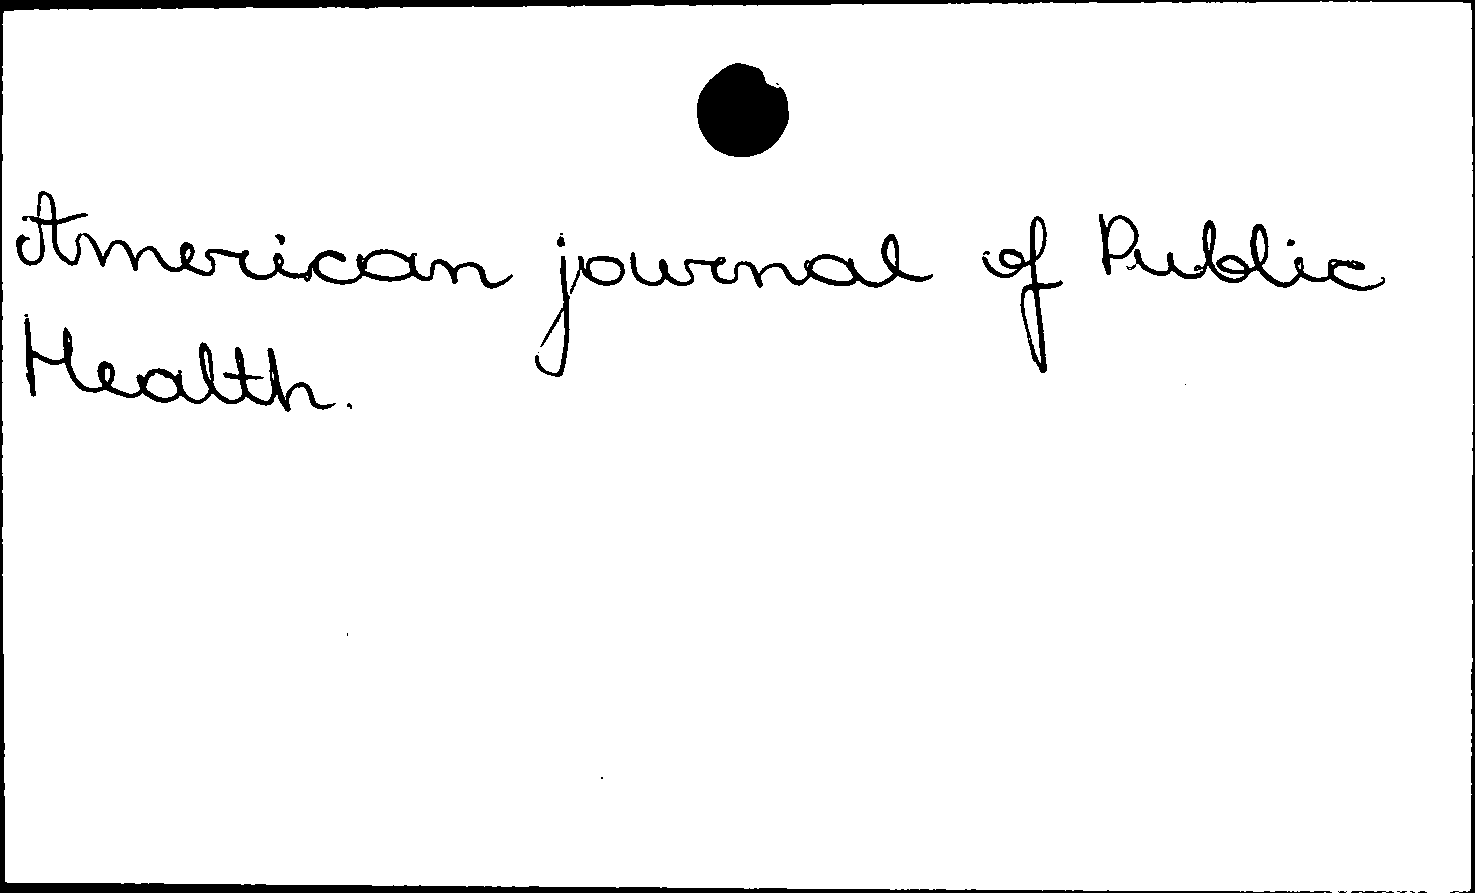 American journal of Public
Health.